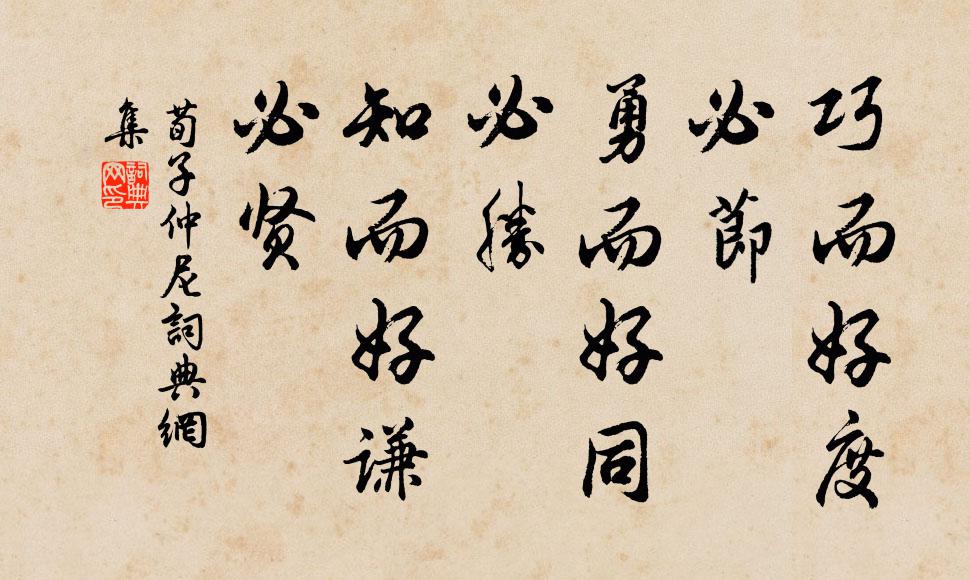 巧而好度
必節
勇而好同
必勝
知而好謙
必贤
荀子仲尼詞典網
集
詞典
网印